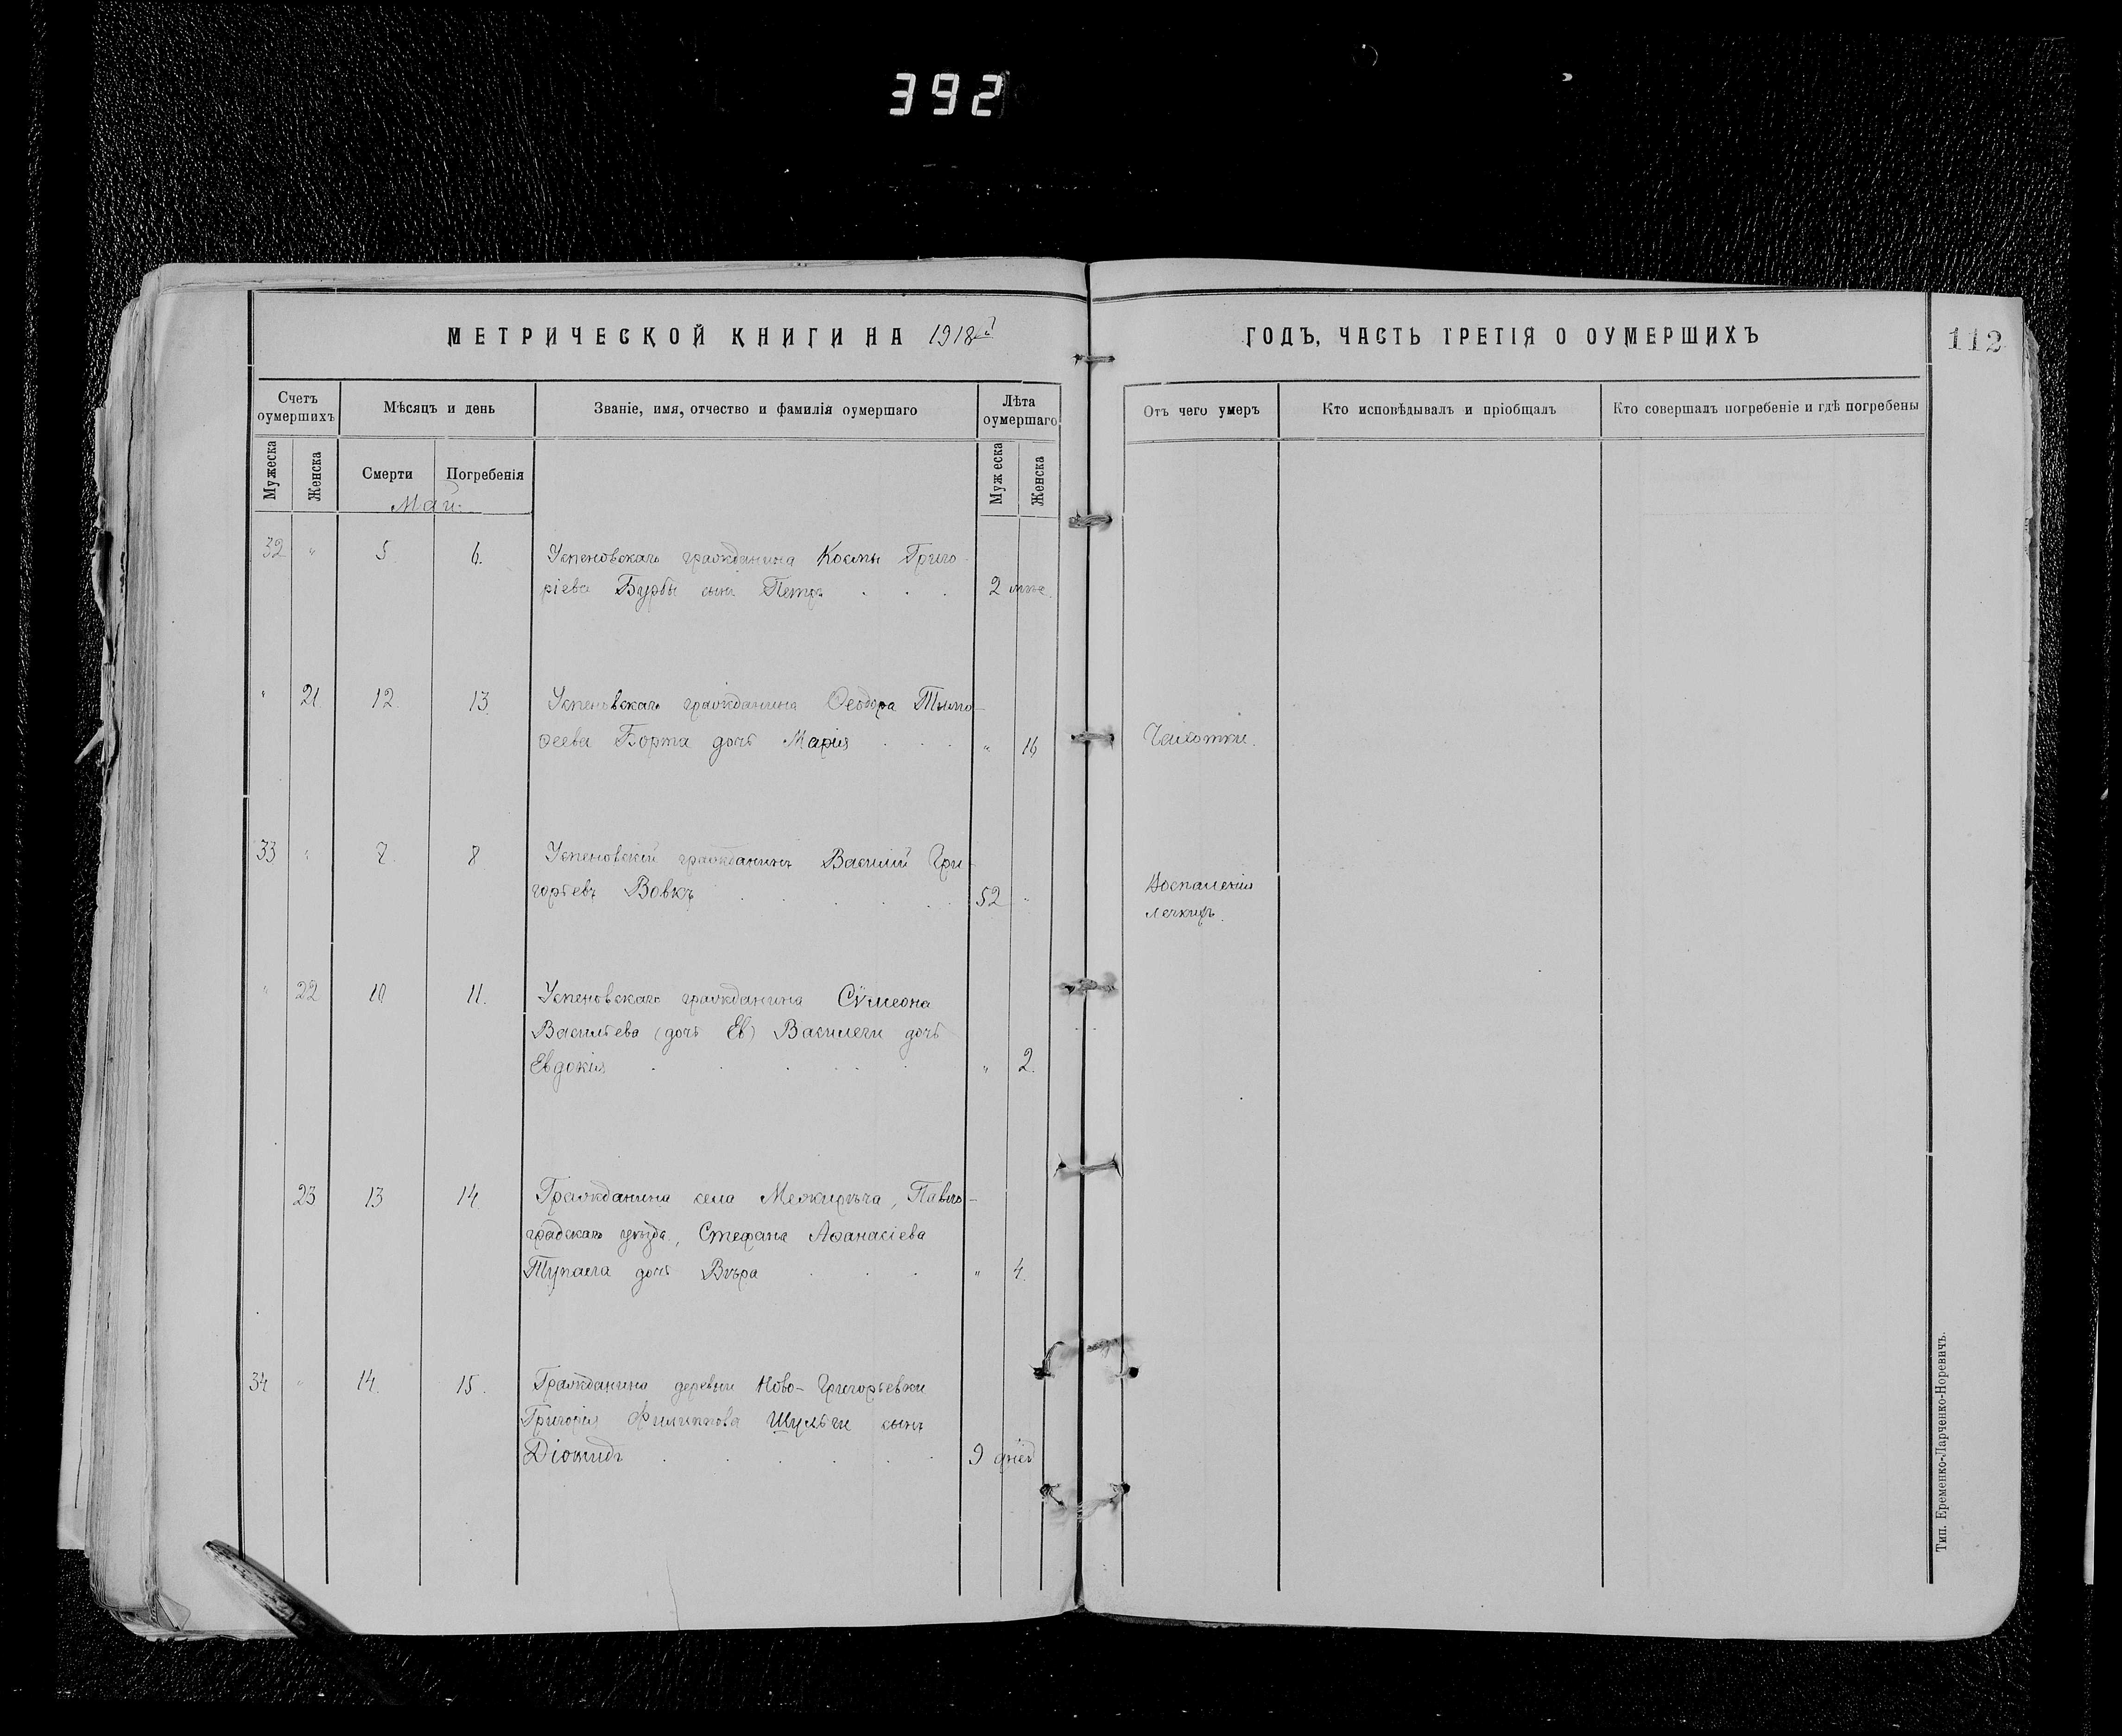 392
МЕТРИЧЕСКОЙ КНИГИ НА 1918й
ГОДЪ, ЧАСТЬ ТРЕТІЯ О ОУМЕРШИХЪ
112
Счетъ оумершихъ
Мѣсяцъ и день
Званіе, имя, отчество и фамилія оумершаго
Лѣта оумершаго
Отъ чего умеръ
Кто исповѣдывалъ и пріобщалъ
Кто совершалъ погребеніе и гдѣ погребены
Мужеска
Женска
Смерти
Погребенія
Муж еска
Женска
Май.
32 " 5. 6. Успеновскаго гражданина Космы Григо-
ріева Бурбы сынъ Петръ . . . 2 мѣс.
" 21 12. 13. Успеновскаго гражданина Ѳеодора Тимо-
ѳеева Борта дочь Марія . . . " 16 Чахотки.
33 " 7. 8 Успеновскій гражданинъ Василій Гри-
горьевъ Вовкъ . . . . . 52 " Воспаленія
легкихъ.
" 22 10 11. Успеновскаго гражданина Сѵмеона
Васильева (дочь Ев) Василеги дочь
Евдокія . . . . . " 2.
23 13 14. Гражданина села Межирѣча, Павло-
градскаго уѣзда, Стефана Аѳанасіева
Тупаега дочь Вѣра . . . " 4.
34 " 14. 15. Гражданина деревни Ново-Григорьевки
Григорія Филиппова Шульги сынъ
Діомидъ . . . . . . 9 дней
Тип. Еременко-Ларченко-Норевичъ.